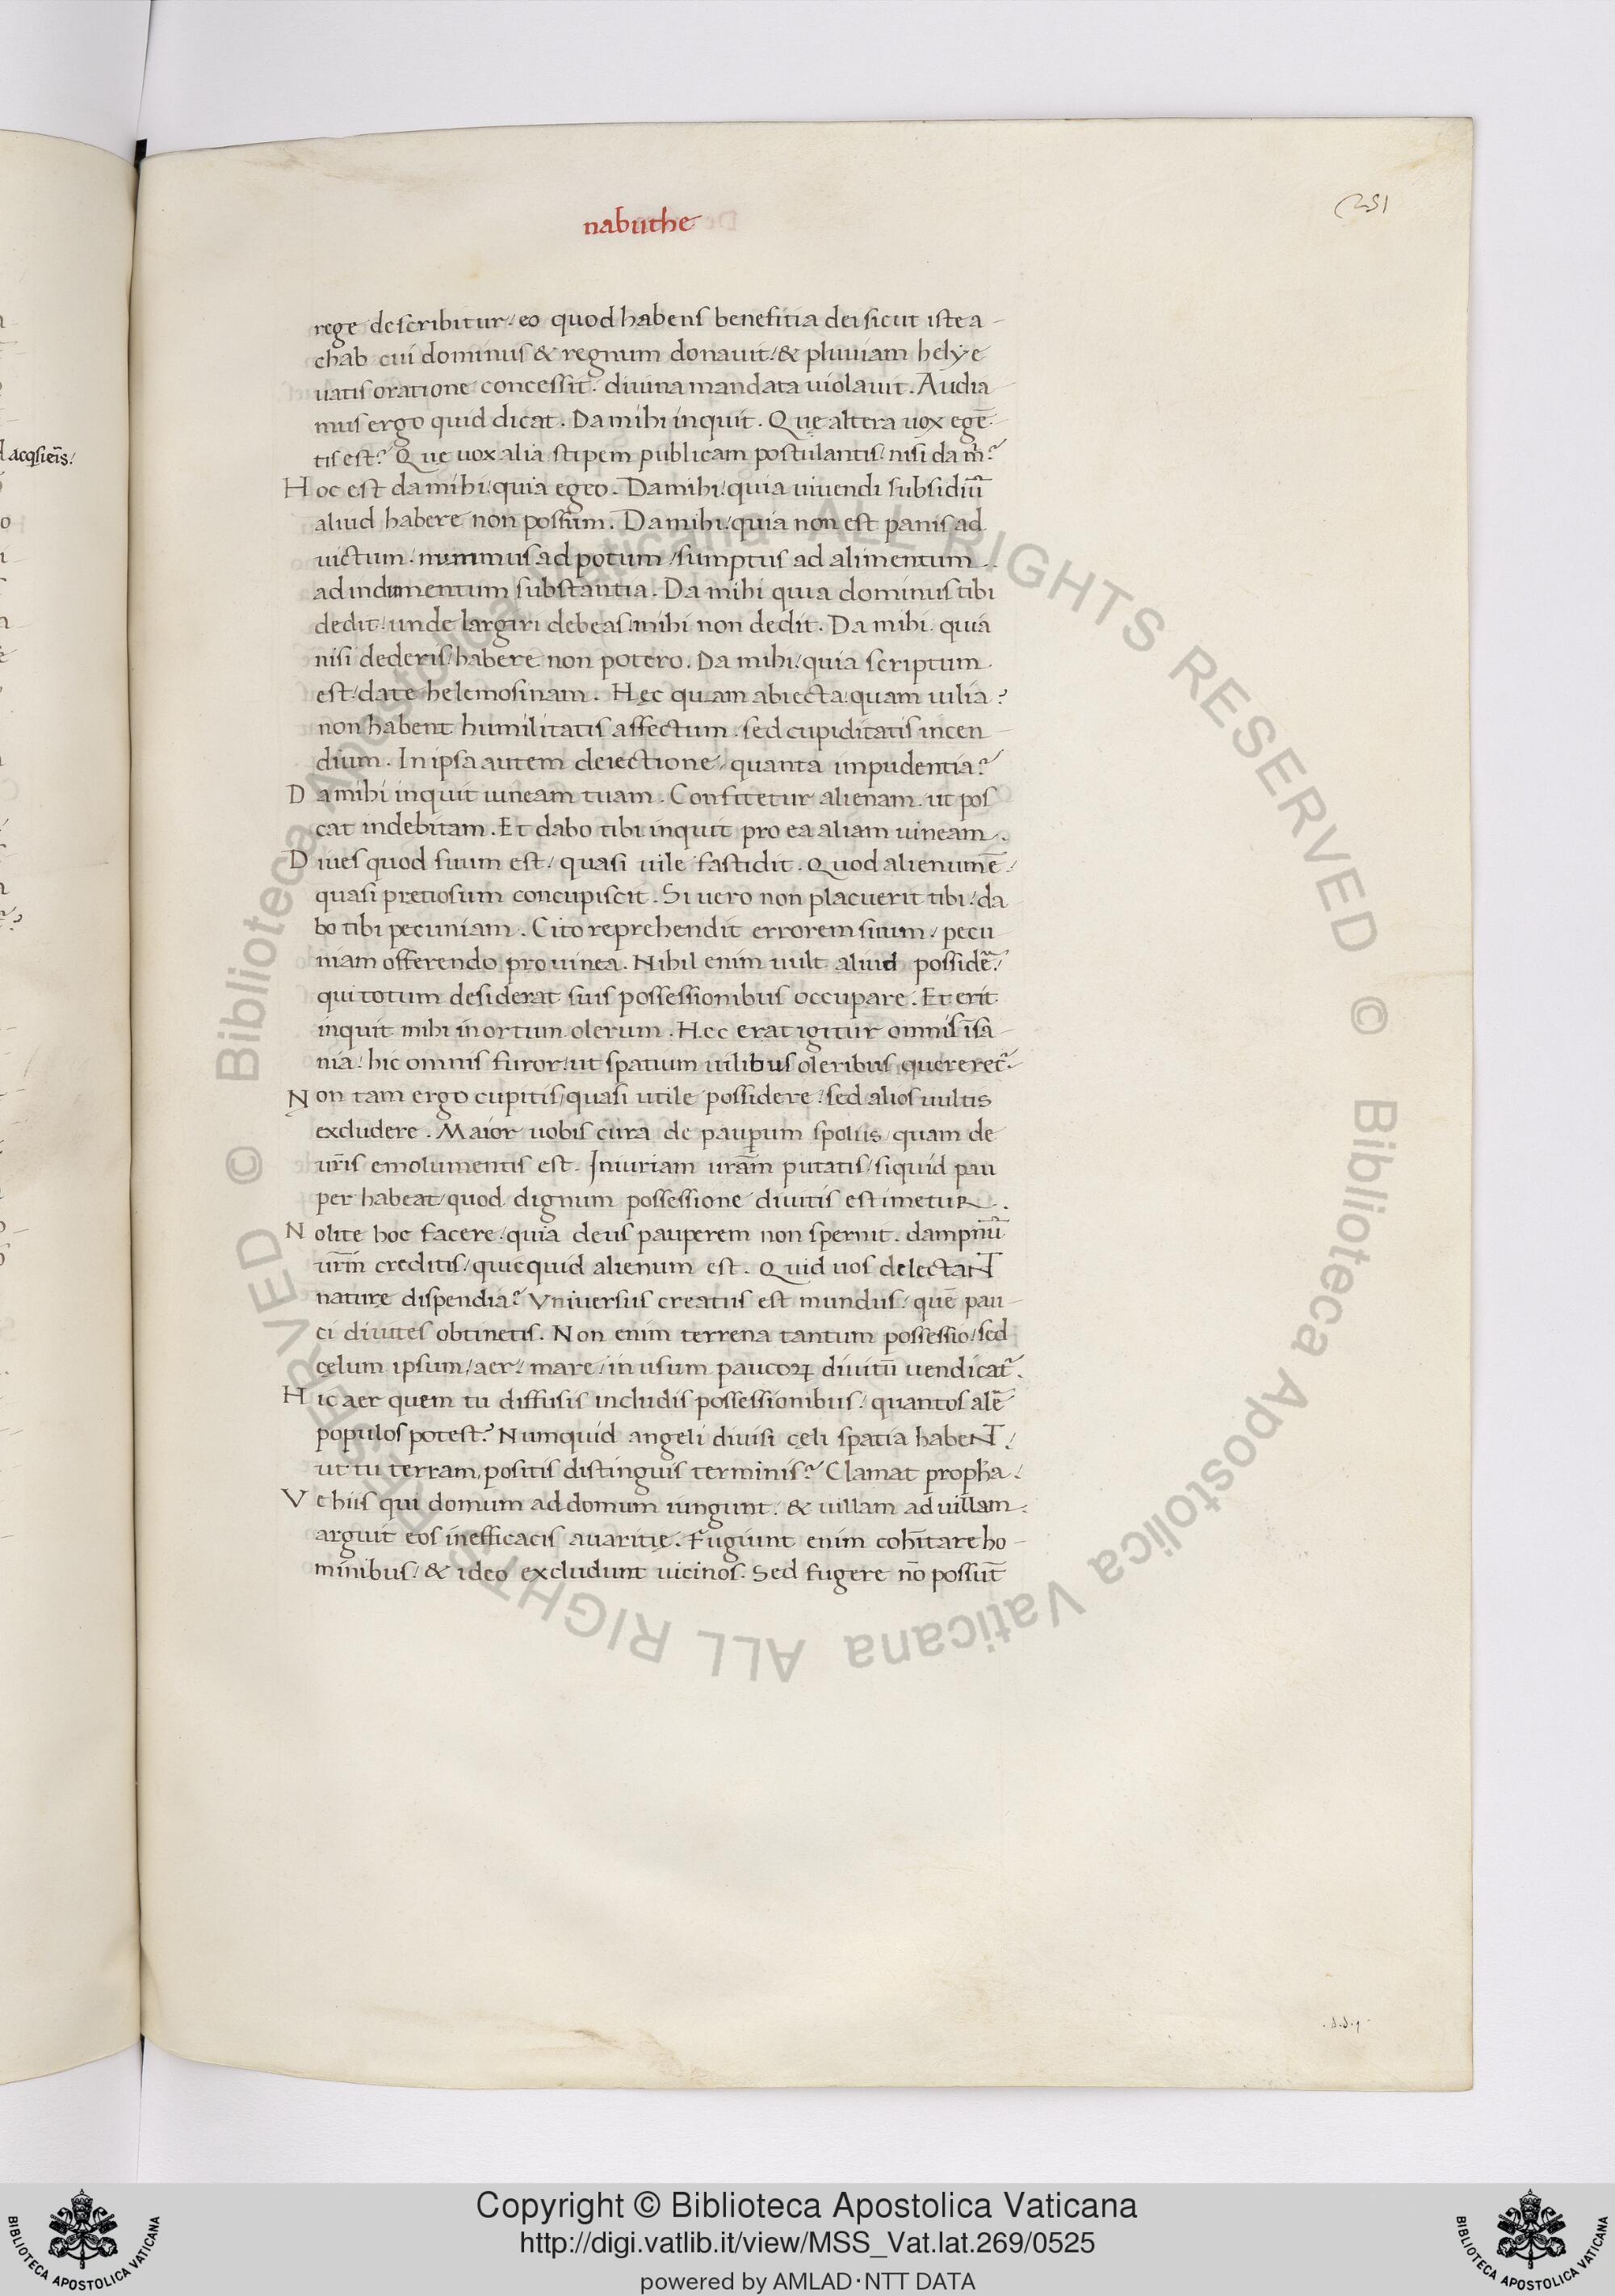 nabuthe
251
rege describitur / eo quod habens benefitia dei sicut iste a-
chab cui dominus & regnum donauit / & pluuiam helye
uatis oratione concessit. diuina mandata uiolauit. Audia-
mus ergo quid dicat. Da mihi inquit. Que altera uox egē-
tis est? Que uox alia stipem publicam postulantis / nisi da m̄?
Hoc est da mihi / quia egeo. Da mihi / quia uiuendi subsidiū
aliud habere non possum. Da mihi / quia non est panis ad
uictum. nummus ad potum / sumptus ad alimentum.
ad indumentum substantia. Da mihi quia dominus tibi
dedit / unde largiri debeas / mihi non dedit. Da mihi quia
nisi dederis / habere non potero. Da mihi / quia scriptum
est / date helemosinam. Hęc quam abiecta quam uilia?
non habent humilitatis affectum. sed cupiditatis incen-
dium. In ipsa autem deiectione / quanta impudentia?
Da mihi inquit uineam tuam. Confitetur alienam. ut pos
cat indebitam. Et dabo tibi inquit pro ea aliam uineam.
Diues quod suum est / quasi uile fastidit. Quod alienum ē /
quasi pretiosum concupiscit. Si uero non placuerit tibi / da
bo tibi pecuniam. Cito reprehendit errorem suum / pecu
niam offerendo pro uinea. Nihil enim uult aliud possidē /
qui totum desiderat suis possessionibus occupare. Et erit
inquit mihi in ortum olerum. Hec erat igitur omnis īsa-
nia / hic omnis furor / ut spatium uilibus oleribus quereret̄.
Non tam ergo cupitis / quasi utile possidere / sed alios uultis
excludere. Maior uobis cura de pauꝑum spoliis / quam de
ur̄is emolumentis est. Iniuriam urām putatis / siquid pau
per habeat / quod dignum possessione diuitis estimetuR.
Nolite hoc facere / quia deus pauperem non spernit. dampnū
ur̄m creditis / quicquid alienum est. Quid uos delectaNT
naturę dispendia? Vniuersus creatus est mundus / quē pau-
ci diuites obtinetis. Non enim terrena tantum possessio / sed
cęlum ipsum / aer / mare / in usum paucoꝝ diuitū uendicat̄.
Hic aer quem tu diffusis includis possessionibus / quantos alē
populos potest? Numquid angeli diuisi cęli spatia habeNT /
ut tu terram positis distinguis terminis? Clamat proph̄a /
Ve hiis qui domum ad domum iungunt / & uillam ad uillam.
arguit eos inefficacis auaritię. Fugiunt enim coh̄itare ho-
minibus / & ideo excludunt uicinos. Sed fugere nō possūt
acq̄sieīs /
© Biblioteca Apostolica Vaticana ALL RIGHTS RESERVED © Biblioteca Apostolica Vaticana ALL RIGHTS RESERVED
Copyright © Biblioteca Apostolica Vaticana
http://digi.vatlib.it/view/MSS_Vat.lat.269/0525
powered by AMLAD·NTT DATA
BIBLIOTECA APOSTOLICA VATICANA
BIBLIOTECA APOSTOLICA VATICANA